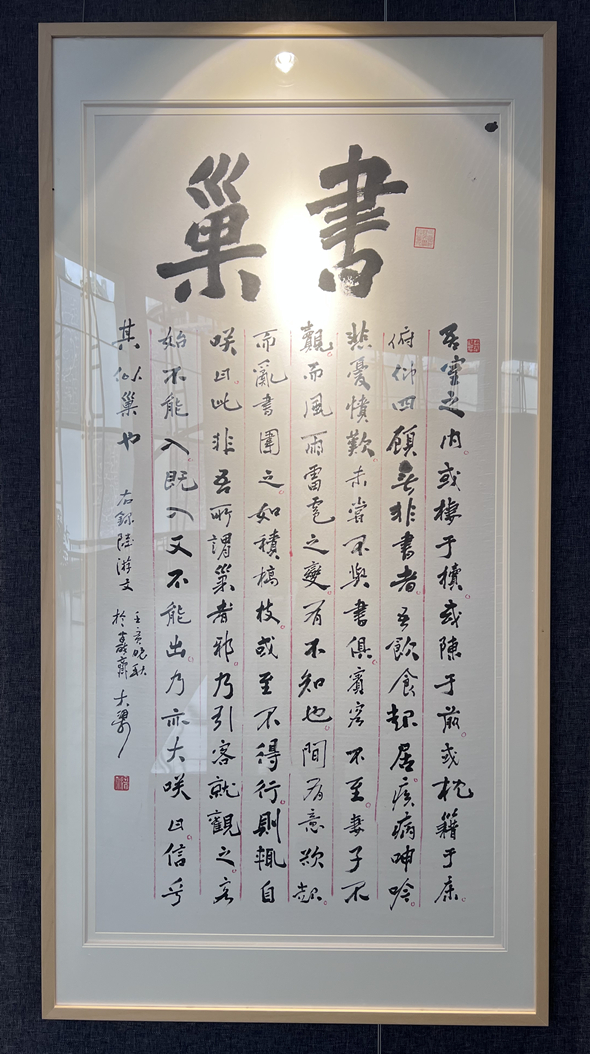 書巢
吾室之内或棲于櫝或陳于前或枕籍于床
俯仰四顧無非書者吾飲食起居疾病呻吟
悲憂憤歎未嘗不與書俱賓客不至妻子不
觀而風雨雷雹之變有不知也間有意欲起
而亂書圍之如積槁枝或至不得行則輒自
咲曰此非吾所謂巢者邪乃引客就觀之客
始不能入既入又不能出乃亦大咲曰信乎
其似巢也
右錄陸游文
晚秋